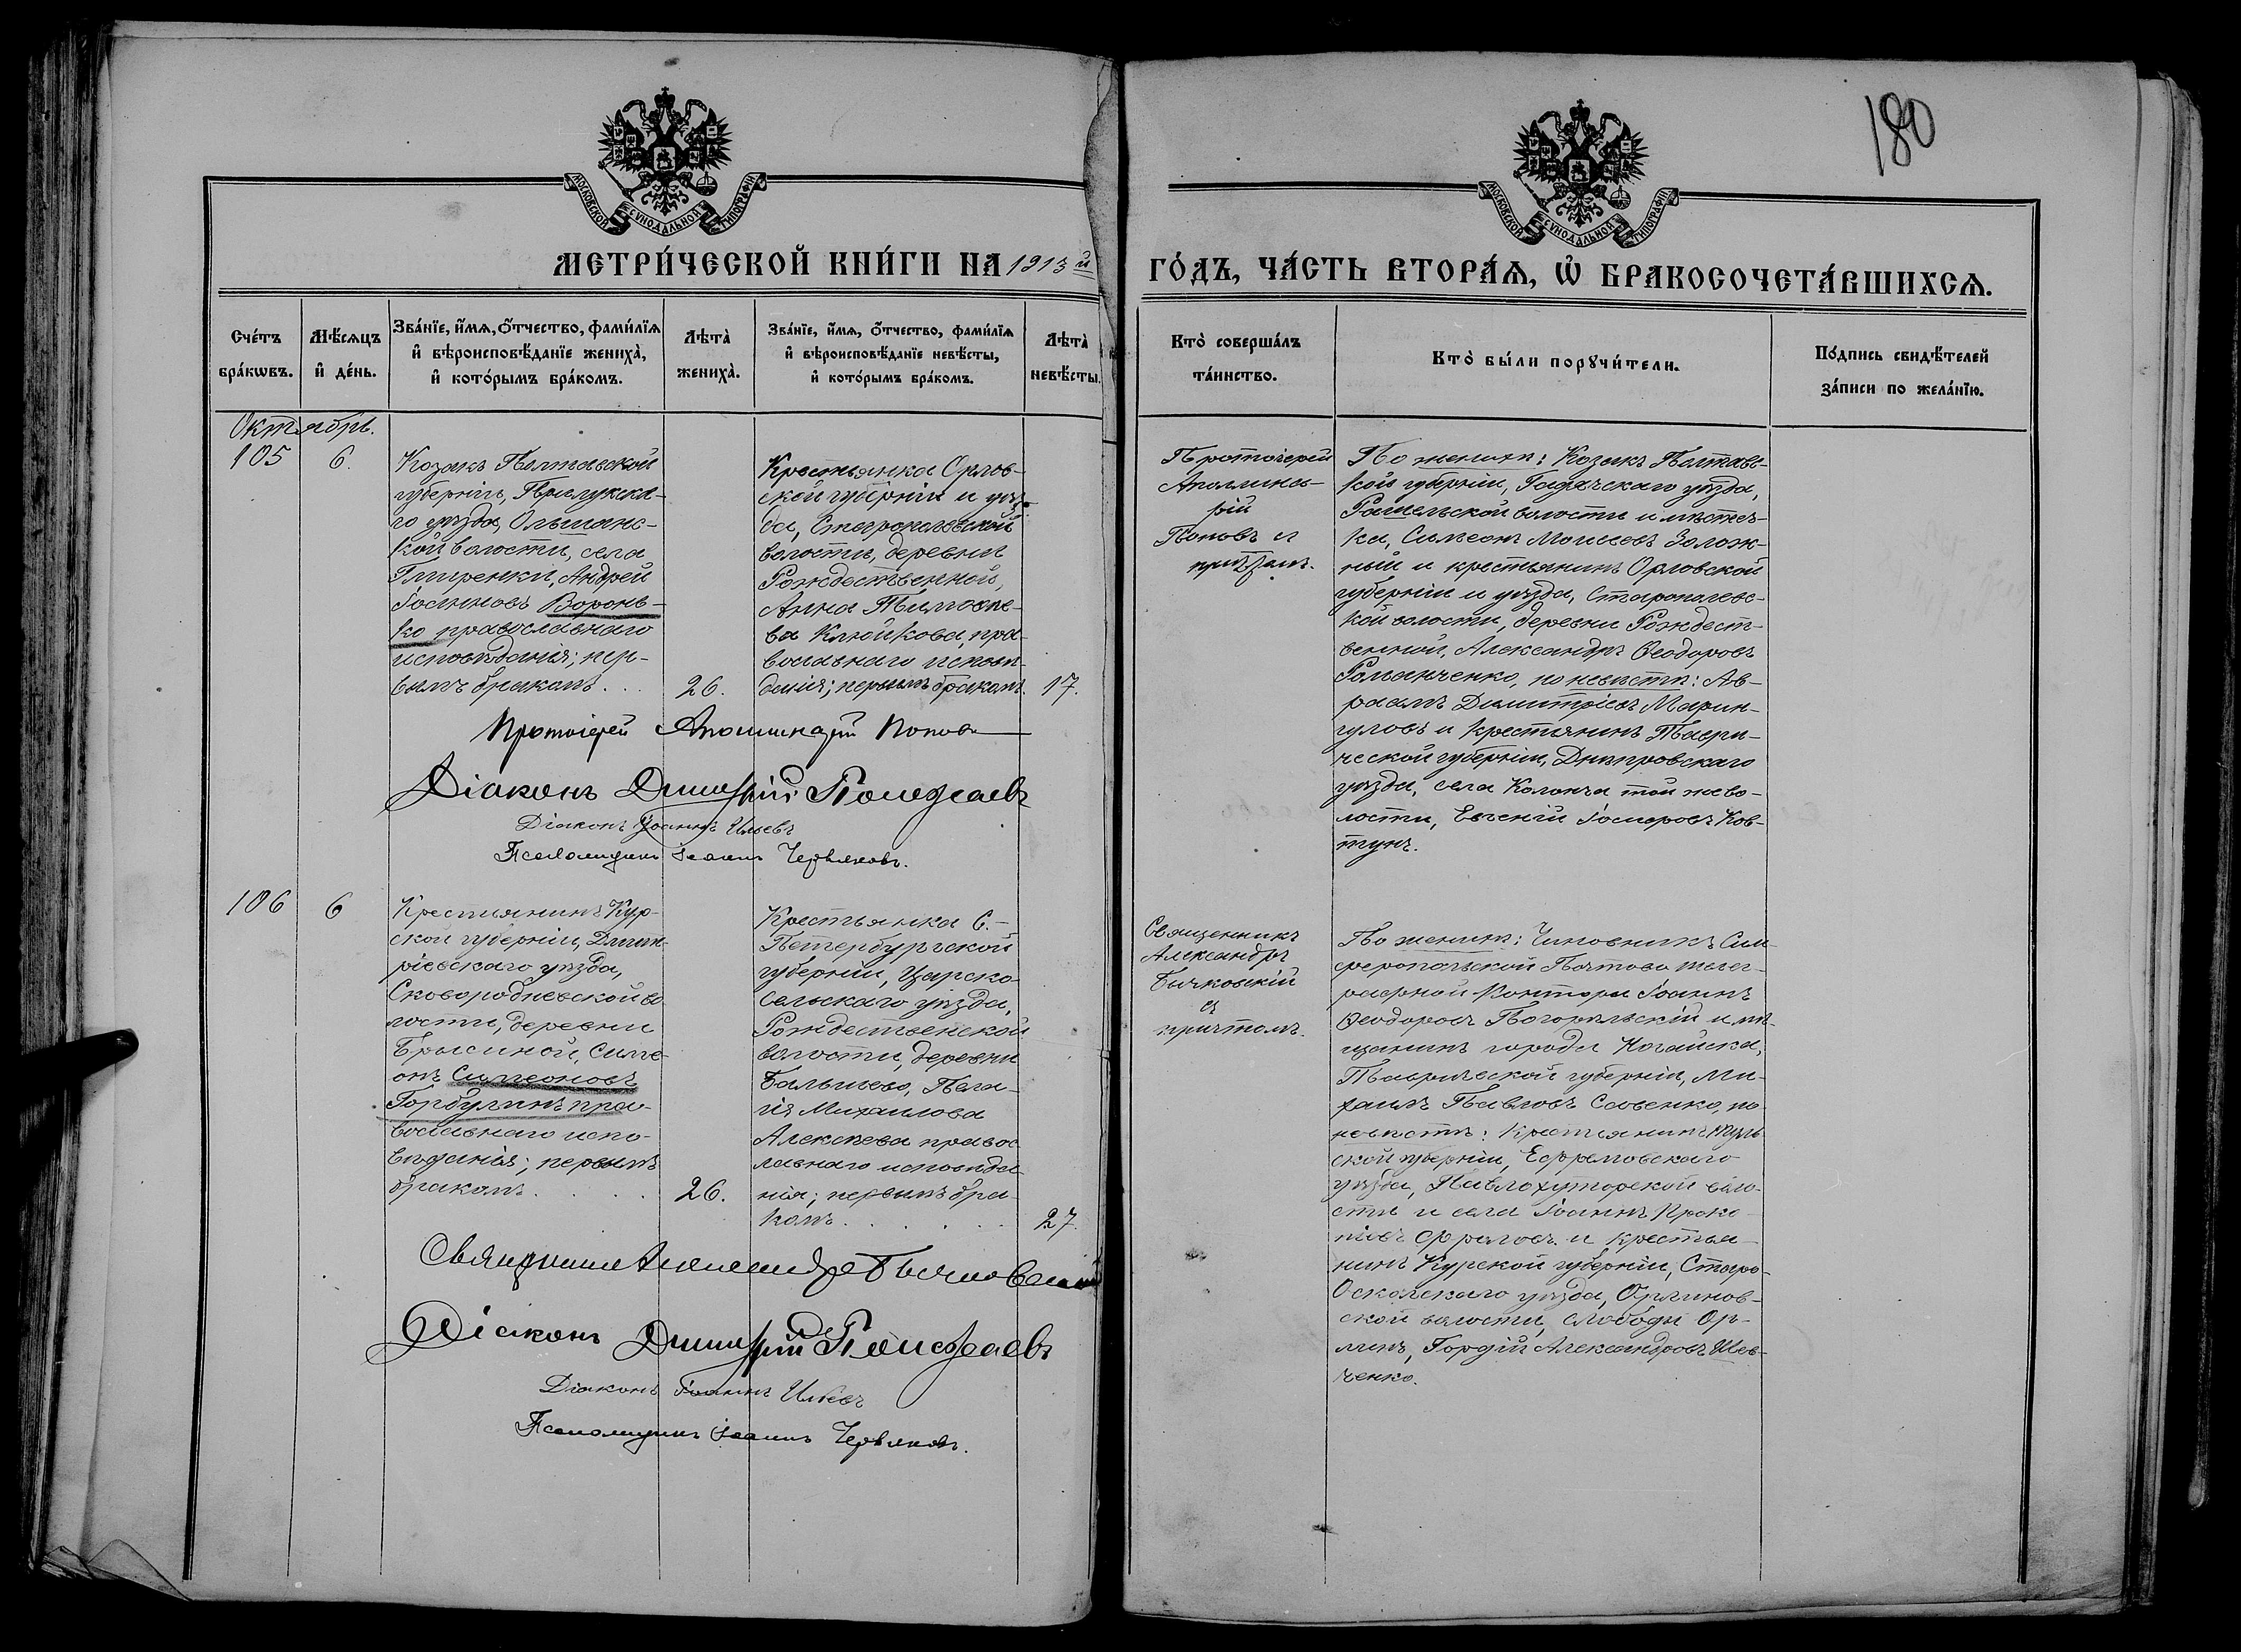 180
МОСКОВСКОЙ СѴНОДАЛЬНОЙ ТИПОГРАФІИ
МОСКОВСКОЙ СѴНОДАЛЬНОЙ ТИПОГРАФІИ
МЕТРИ́ЧЕСКОЙ КНИ́ГИ НА 1913 й
ГО́ДЪ, ЧА́СТЬ ВТОРА́Ѧ, Ѽ БРАКОСОЧЕТА́ВШИХСѦ.
Сче́тъ
бра́кѡвъ.
Мѣ́сѧцъ
и҆ де́нь.
Зва́нїе, и҆́мѧ, ѻ҆́тчество, фами́лїѧ
и҆ вѣроисповѣ́данїе жениха̀,
и҆ кото́рымъ бра́комъ.
Лѣта̀
жениха̀.
Зва́нїе, и҆́мѧ, ѻ҆́тчество, фами́лїѧ
и҆ вѣроисповѣ́данїе невѣ́сты,
и҆ кото́рымъ бра́комъ.
Лѣта̀
невѣ́сты.
Кто̀ соверша́лъ
та́инство.
Кто̀ бы́ли порꙋчи́тели.
По́дпись свидѣ́телей
за́писи по жела́нїю.
Октябрь.
105
6.
Козакъ Полтавской
губерніи, Прилукска-
го уѣзда, Ольшанс-
кой волости, села
Гмиренки, Андрей
Іоанновъ Воронь-
ко православнаго
исповѣданія; пер-
вымъ бракомъ...
26.
Крестьянка Орлов-
ской губерніи и уѣз-
да, Старопагевской
волости, деревни
Рождественной,
Анна Тимоѳее-
ва Клюйкова, пра-
вославнаго исповѣ-
данія; первымъ бракомъ.
17.
Протоіерей
Аполлина-
рій
Поповъ съ
причтомъ.
По женихѣ: Козакъ Полтавс-
кой губерніи, Гадячскаго уѣзда,
Рашельской волости и мѣстеч-
ка, Симеонъ Моисеевъ Золож-
ный и крестьянинъ Орловской
губерніи и уѣзда, Старопагевс-
кой волости, деревни Рождест-
венной, Александръ Ѳеодоровъ
Романченко, по невѣстѣ: Ав-
раамъ Димитріевъ Марин-
гуловъ и крестьянинъ Таври-
ческой губерніи, Днѣпровскаго
уѣзда, села Колонча той же во-
лости, Евгеній Іосифовъ Ков-
тунъ.
Протоіерей Аполлинарій Поповъ
Діаконъ Димитрій Полежаевъ
Діаконъ Іоаннъ Ильевъ
Псаломщикъ Іоаннъ Червяковъ.
106
6
Крестьянинъ Кур-
ской губерніи, Димит-
ріевскаго уѣзда,
Сковородневской во-
лости, деревни
Брысиной, Симе-
онъ Симеоновъ
Горбулинъ пра-
вославнаго испо-
вѣданія; первымъ
бракомъ....
26.
Крестьянка С.-
Петербургской
губерніи, Царско-
сельскаго уѣзда,
Рождественской
волости, деревни
Батьшево, Пела-
гія Михаилова
Алексѣева правос-
лавнаго исповѣда-
нія; первымъ бра-
комъ......
27.
Священникъ
Александръ
Бычковскій
съ
причтомъ.
По женихѣ: Чиновникъ Сим-
феропольской Почтово телег-
рафной Конторы Іоаннъ
Ѳеодоровъ Погорѣльскій и мѣ-
щанинъ города Ногайска,
Таврической губерніи, Ми-
хаилъ Павловъ Савенко, по
невѣстѣ: Крестьянинъ Туль-
ской губерніи, Ефремовскаго
уѣзда, Павлохуторской воло-
сти и села Іоаннъ Проко-
піевъ Фроловъ и крестья-
нинъ Курской губерніи, Старо-
Оскольскаго уѣзда, Орликов-
ской волости, слободы Ор-
ликъ, Гордій Александровъ Шев-
ченко.
Священникъ Александръ Бычковскій
Діаконъ Димитрій Полежаевъ
Діаконъ Іоаннъ Ильевъ
Псаломщикъ Іоаннъ Червяковъ.